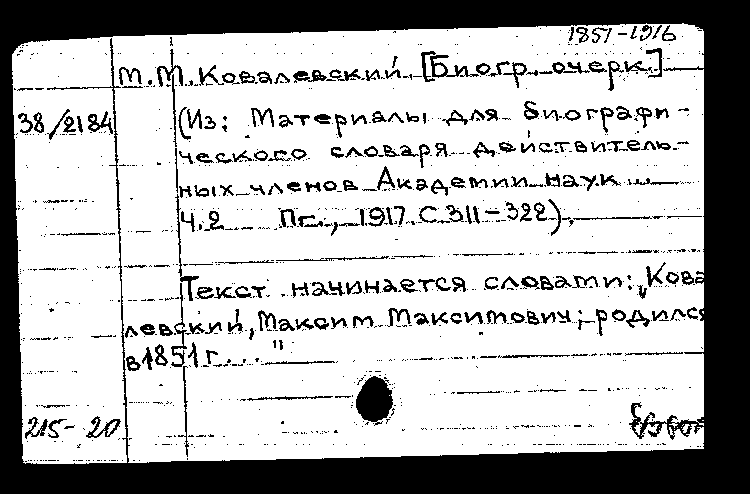 1851-1916
М.М.Ковалевский. [Биогр. очерк.]
38/2184
(Из: Материалы для биографи-
ческого словаря действитель-
ных членов Академии наук ...
Ч.2 Пг., 1917. С 311-322).
Текст начинается словами: „Кова
левский, Максим Максимович; родился
в 1851 г. ... "
215-20